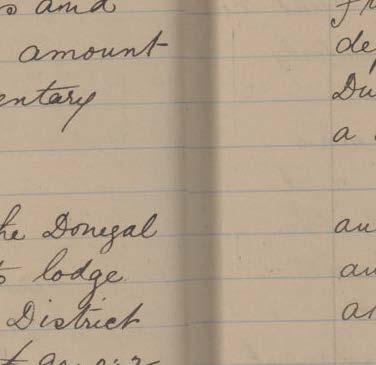 and
amount
entary
he Donegal
lodge
District
de
Du
a
au
au